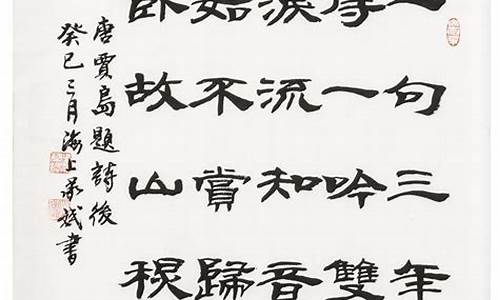 句三年
一吟雙
淚流知音
如不賞歸
臥故山
唐賈島題詩後
癸巳三月海上書